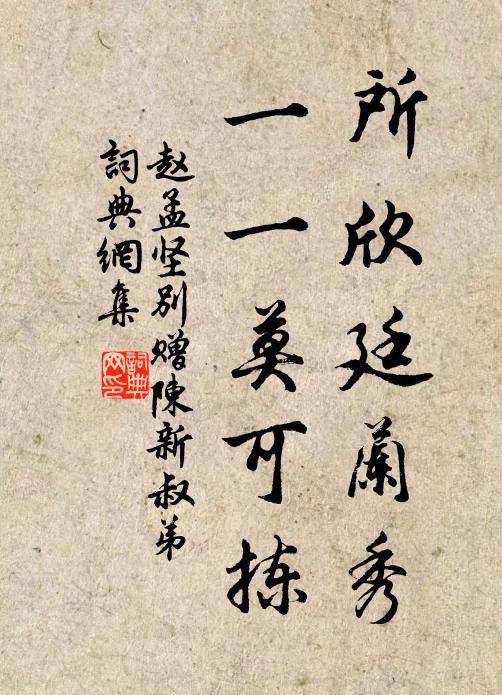 所欣廷蘭秀
一一莫可拣
赵孟坚别赠陳新叔弟
詞典網集
詞典网印